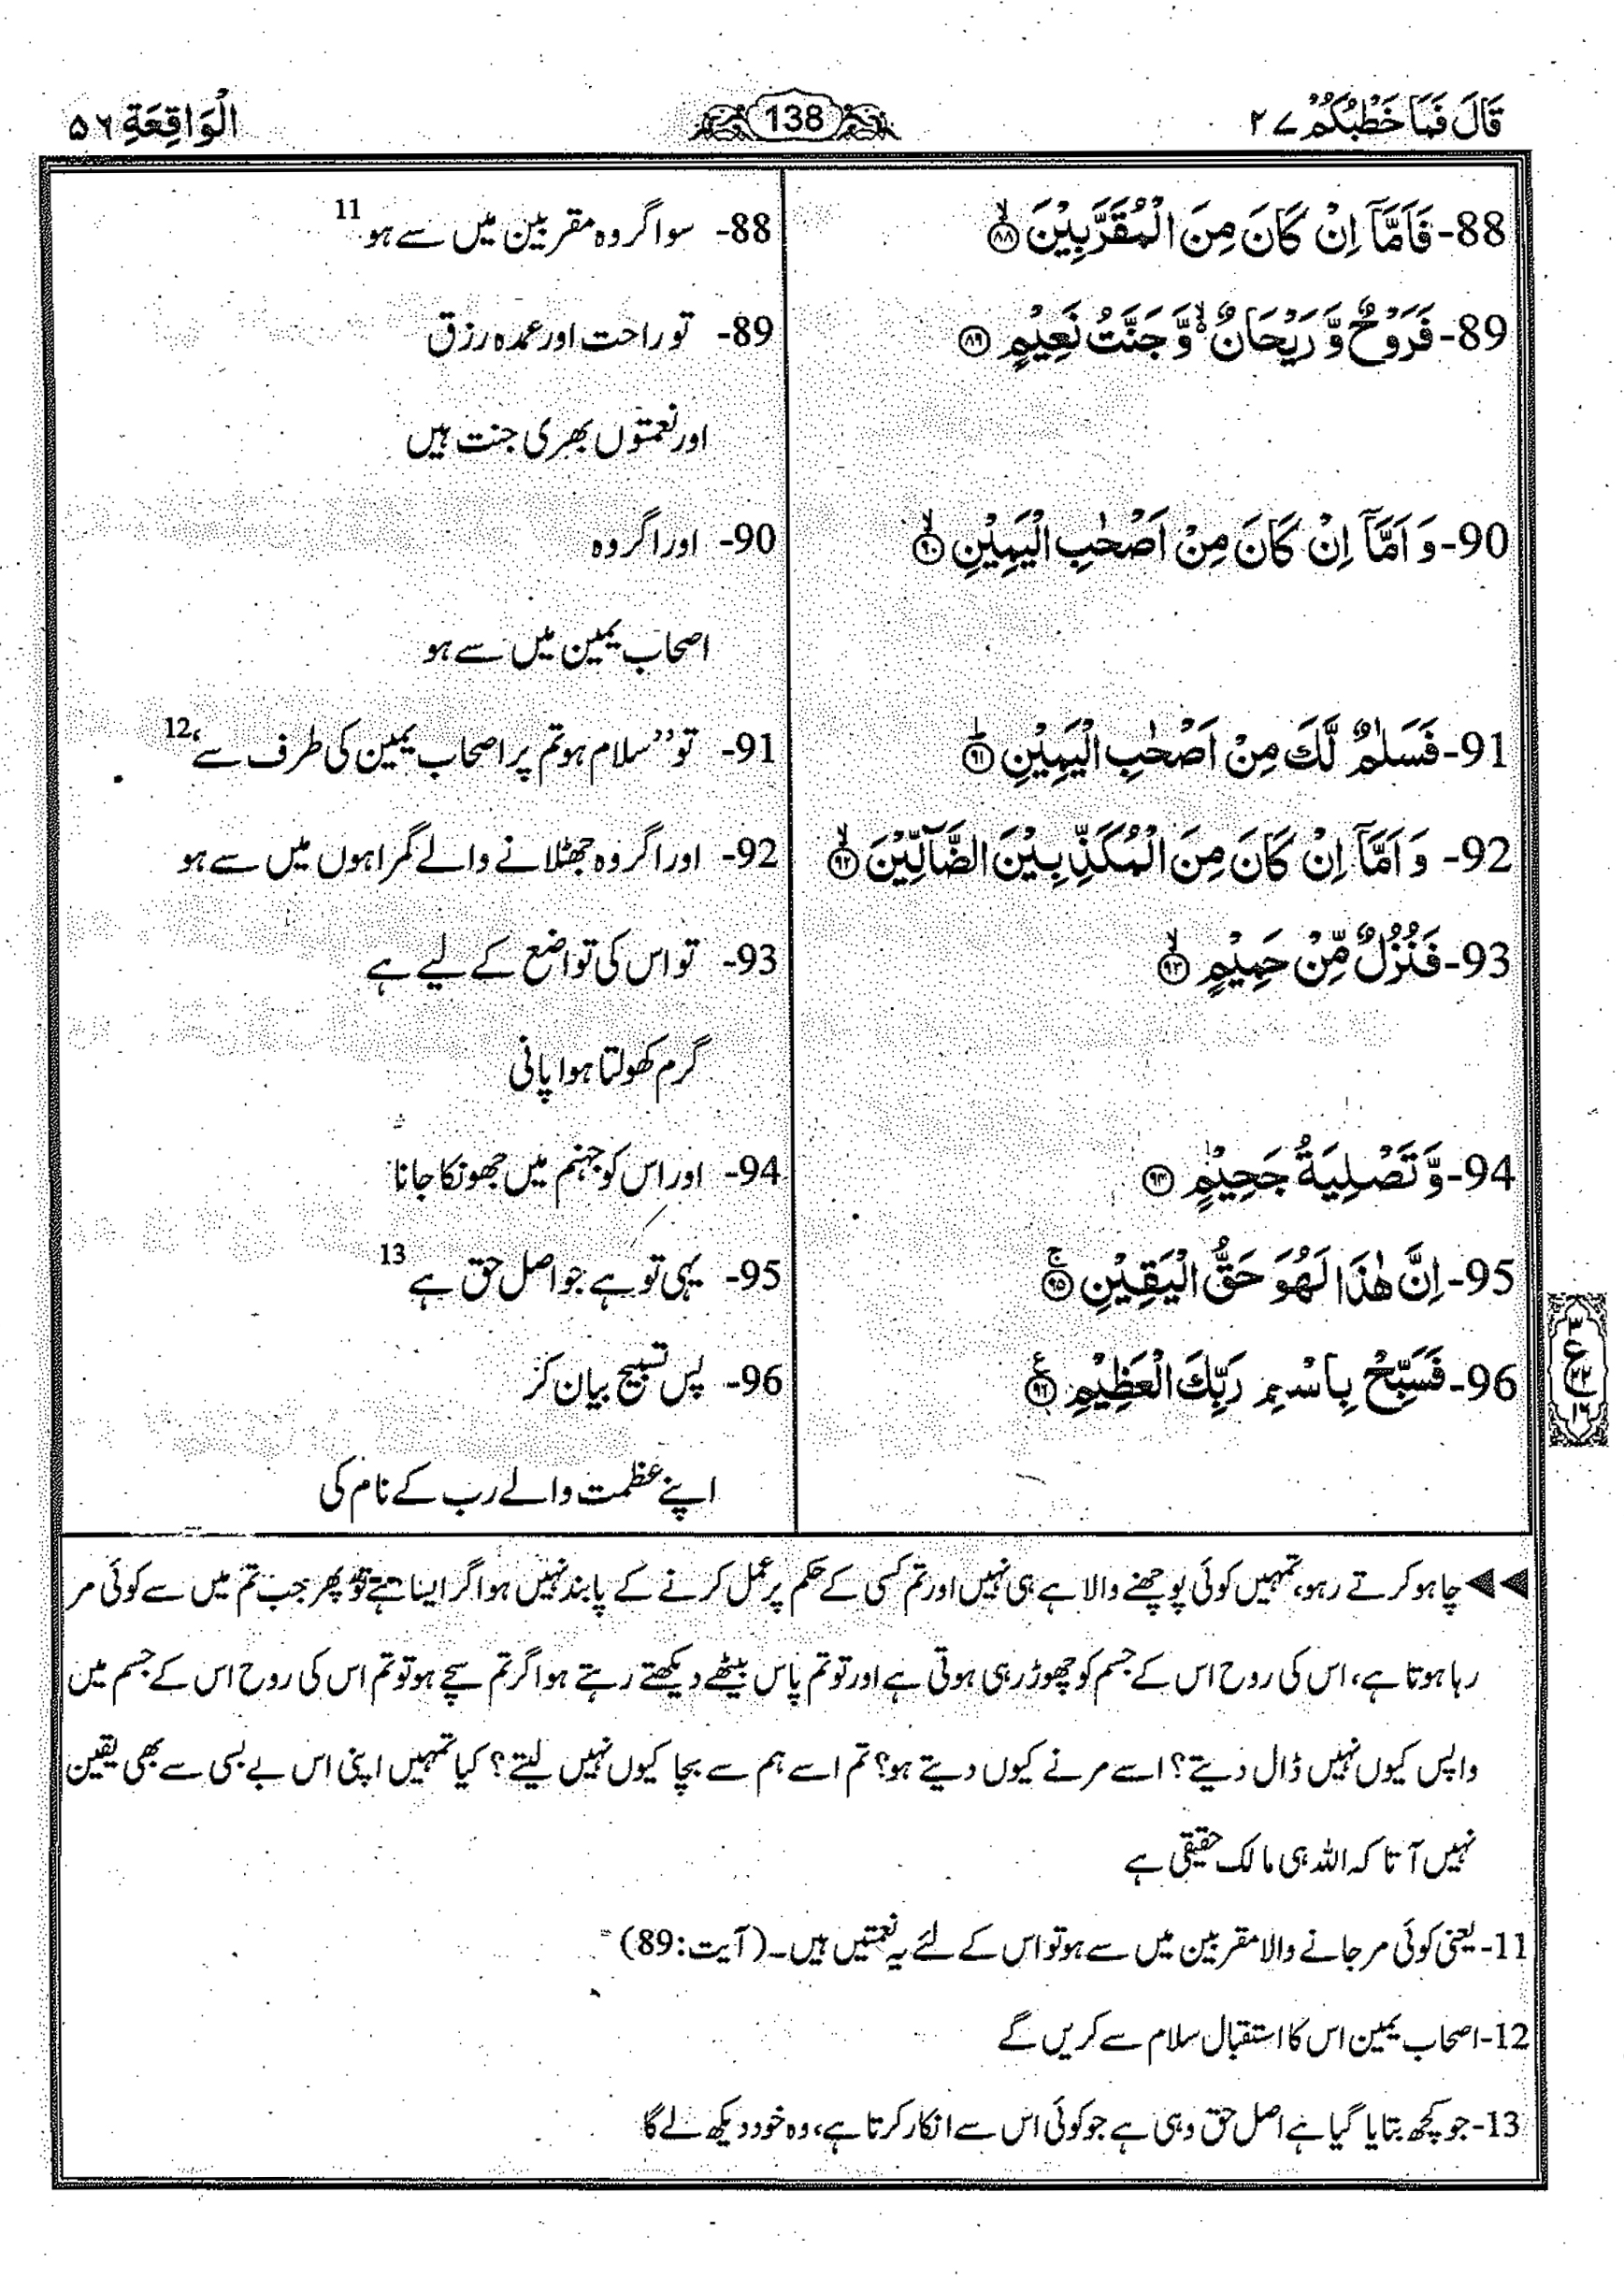 قَالَ فَمَا خَطْبُكُمْ ۲۷
138
الْوَاقِعَة ۵۶
88- فَاَمَّاۤ اِنْ كَانَ مِنَ الْمُقَرَّبِيْنَ ۙ﴿۸۸﴾
88- سو اگر وہ مقربین میں سے ہو 11
89- فَرَوْحٌ وَّ رَيْحَانٌ ۙ۬ وَّ جَنَّتُ نَعِيْمٍ ﴿۸۹﴾
89- تو راحت اور عمدہ رزق
اور نعمتوں بھری جنت ہیں
90- وَ اَمَّاۤ اِنْ كَانَ مِنْ اَصْحٰبِ الْيَمِيْنِ ۙ﴿۹۰﴾
90- اور اگر وہ
اصحاب یمین میں سے ہو
91- فَسَلٰمٌ لَّكَ مِنْ اَصْحٰبِ الْيَمِيْنِ ؕ﴿۹۱﴾
91- تو ’’سلام ہو تم پر اصحاب یمین کی طرف سے‘‘ 12
92- وَ اَمَّاۤ اِنْ كَانَ مِنَ الْمُكَذِّبِيْنَ الضَّآلِّيْنَ ۙ﴿۹۲﴾
92- اور اگر وہ جھٹلانے والے گمراہوں میں سے ہو
93- فَنُزُلٌ مِّنْ حَمِيْمٍ ۙ﴿۹۳﴾
93- تو اس کی تواضع کے لیے ہے
گرم کھولتا ہوا پانی
94- وَّ تَصْلِيَةُ جَحِيْمٍ ﴿۹۴﴾
94- اور اس کو جہنم میں جھونکا جانا
95- اِنَّ هٰذَا لَهُوَ حَقُّ الْيَقِيْنِ ۚ﴿۹۵﴾
95- یہی تو ہے جو اصل حق ہے 13
96- فَسَبِّحْ بِاسْمِ رَبِّكَ الْعَظِيْمِ ﴿۹۶﴾ ع
96- پس تسبیح بیان کر
اپنے عظمت والے رب کے نام کی
۳
ع
۲۲
۱۶
◄◄ چاہو کرتے رہو، تمہیں کوئی پوچھنے والا ہے ہی نہیں اور تم کسی کے حکم پر عمل کرنے کے پابند نہیں ہو اگر ایسا ہے تو پھر جب تم میں سے کوئی مر
رہا ہوتا ہے، اس کی روح اس کے جسم کو چھوڑ رہی ہوتی ہے اور تو تم پاس بیٹھے دیکھتے رہتے ہو اگر تم سچے ہو تو تم اس کی روح اس کے جسم میں
واپس کیوں نہیں ڈال دیتے؟ اسے مرنے کیوں دیتے ہو؟ تم اسے ہم سے بچا کیوں نہیں لیتے؟ کیا تمہیں اپنی اس بے بسی سے بھی یقین
نہیں آتا کہ اللہ ہی مالک حقیقی ہے
11- یعنی کوئی مر جانے والا مقربین میں سے ہو تو اس کے لئے یہ نعمتیں ہیں۔ (آیت: 89)
12- اصحاب یمین اس کا استقبال سلام سے کریں گے
13- جو کچھ بتایا گیا ہے اصل حق وہی ہے جو کوئی اس سے انکار کرتا ہے، وہ خود دیکھ لے گا